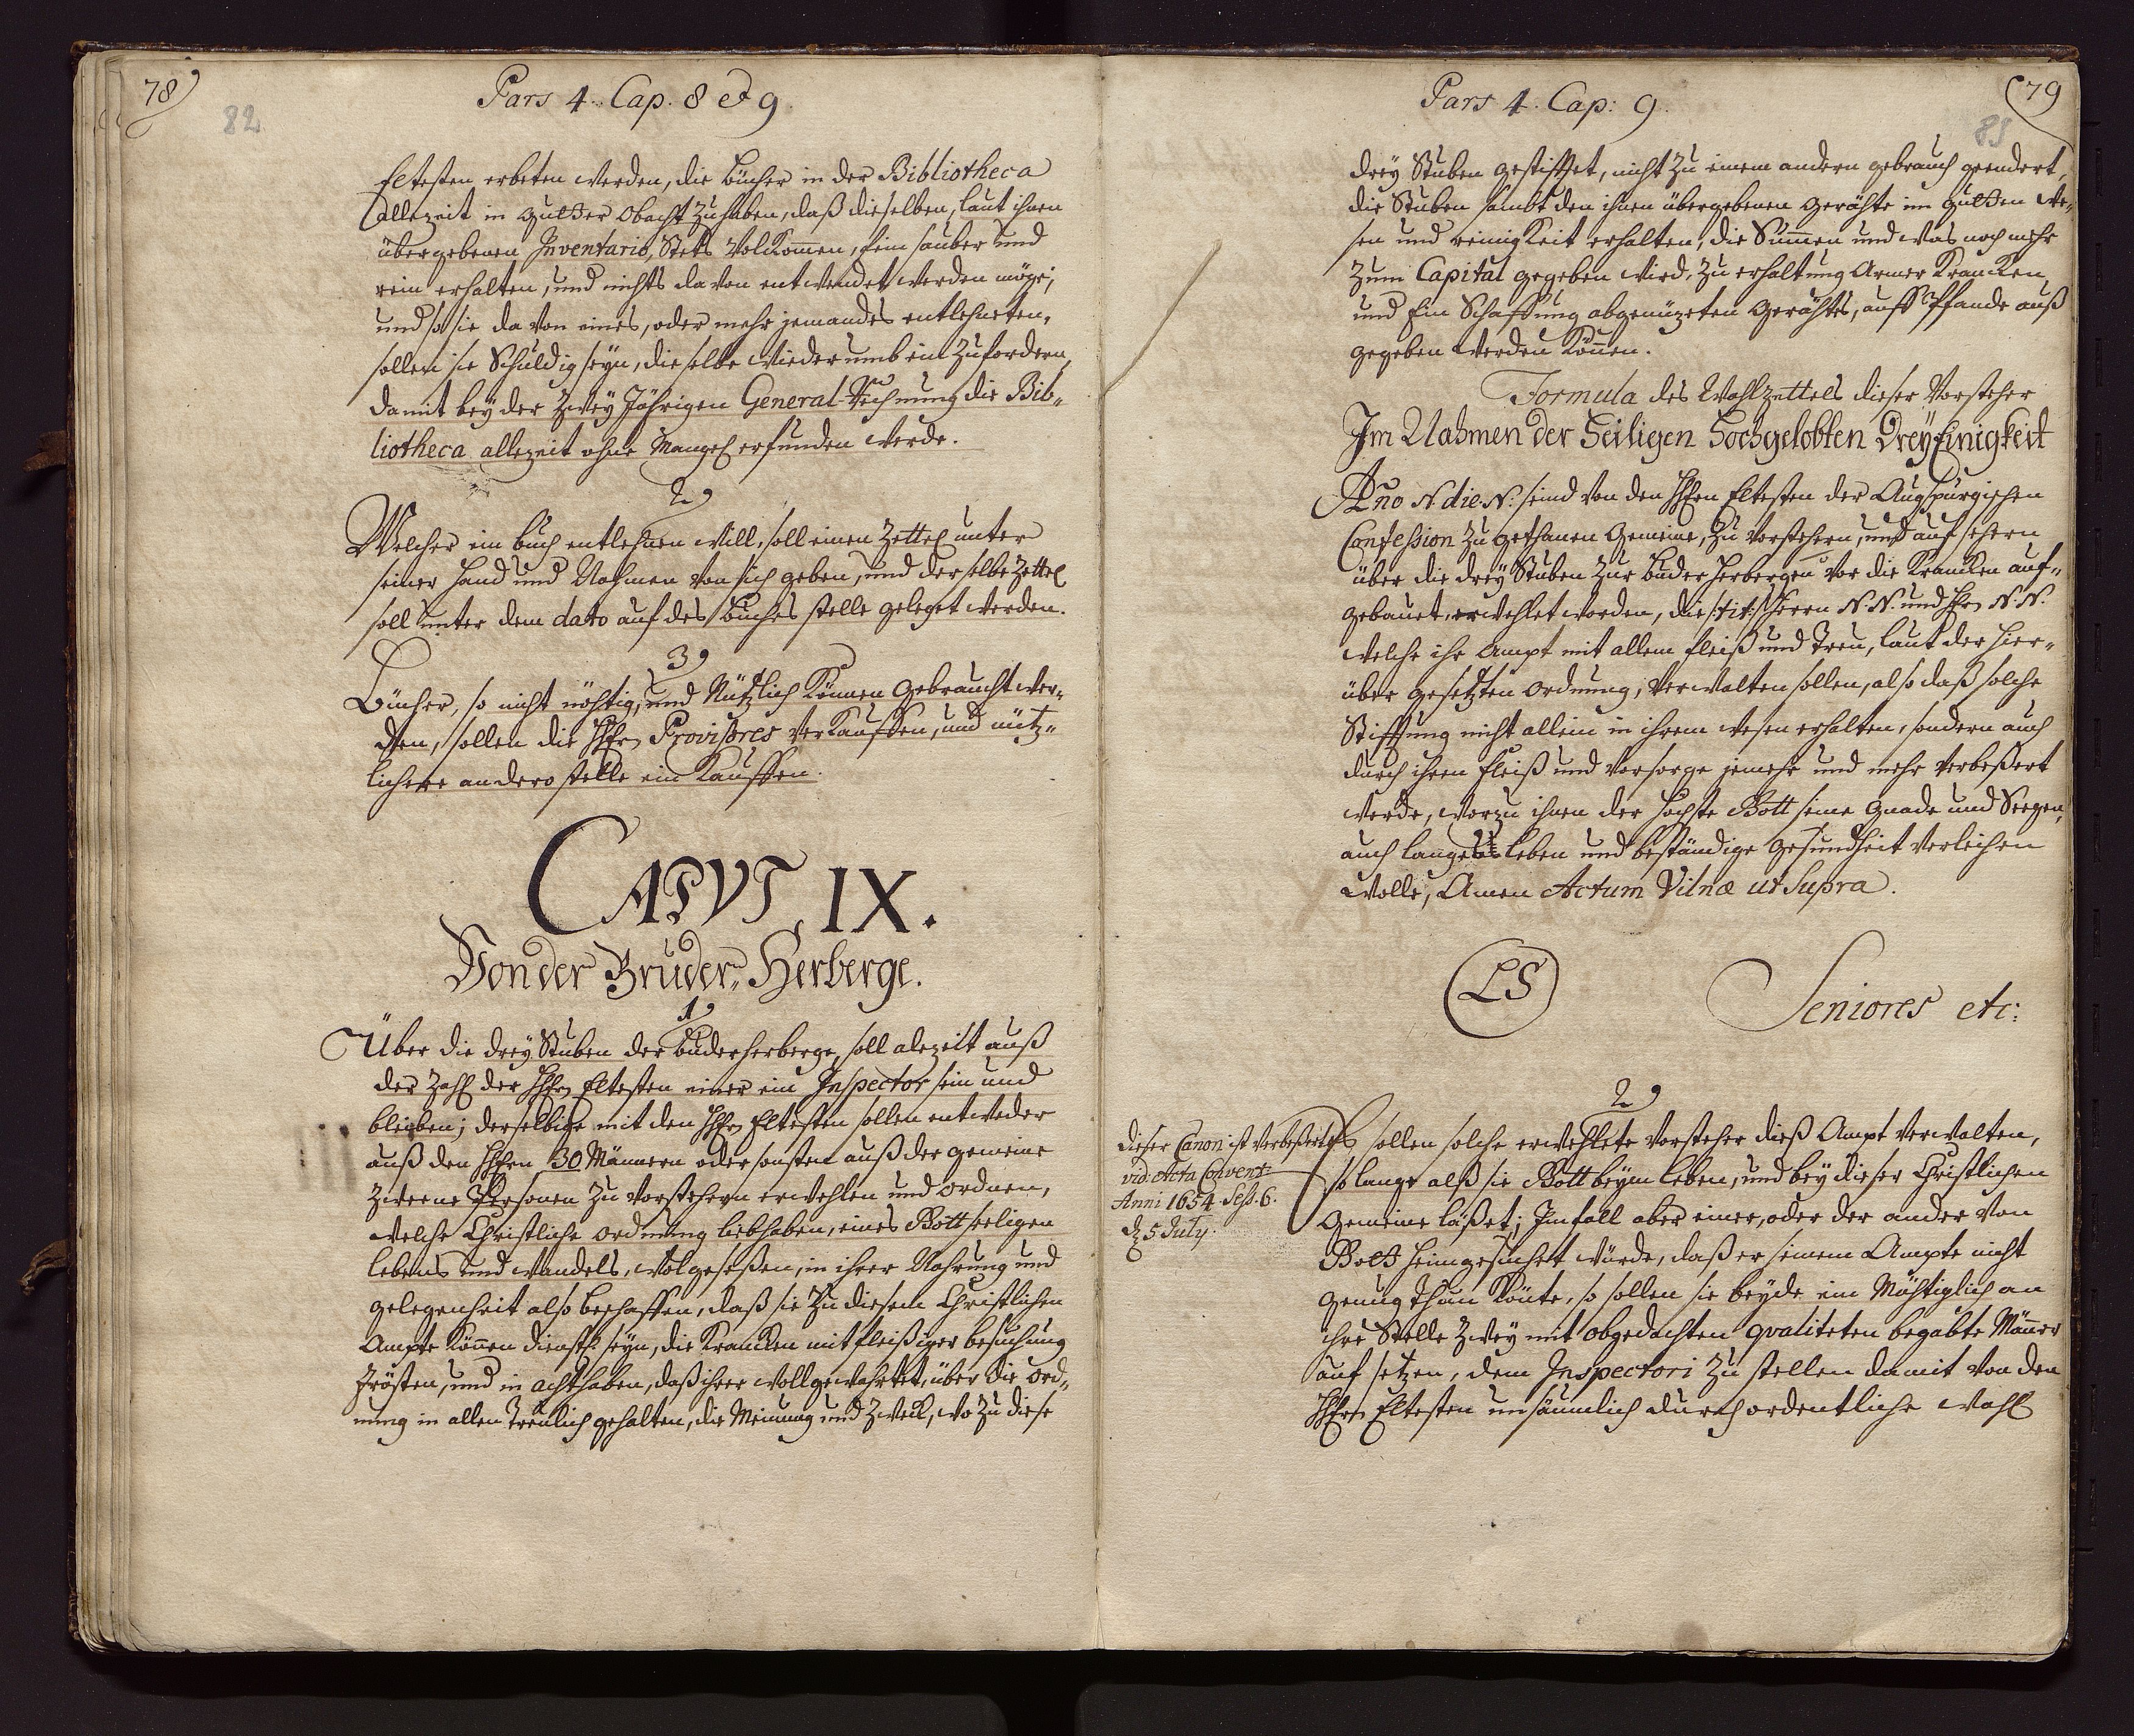 78
82
Pars 4. Cap. 8 et 9.
Eltesten erbeten werden, die Bücher in der Bibliotheca
allezeit in gutter obacht zuhaben, daß dieselben, laut ihnen
übergebenen Inventario, Stets Volkomen, fein sauber und
rein erhalten, und nichts davon entwendet werden möge;
und so sie davon eines, oder mehr jemandes entlehneten,
sollen sie Schuldig seyn, dieselbe Wiederumb ein zufordern,
damit bey der zwey Jährigen General-Rechnung die Bib„
liotheca allezeit ohne Mangel erfunden werde.
2
Welcher ein buch entlehnen will, soll einen Zettel unter
seiner Hand und Nahmen von sich geben, und derselbe Zettel
soll unter dem dato auf des Buches stelle geleget werden.
3
Bücher, so nicht nöhtig, und Nützlich können gebraucht wer„
den, sollen die HHrn Provisores verkauffen, und nütz„
lichere an dero stelle ein kauffen.
CAPVT IX.
Von der Bruder„ Herberge.
1
Über die drey Stuben der Buderherberge, soll alezeitt auß
der Zahl der HHrn Eltesten einer ein Inspector sein und
bleiben; derselbige mit den HHrn Eltesten sollen entweder
auß den HHrn 30 Männern oder sonsten auß der gemeine
zweene Personen zu Vorstehern erwehlen und ordnen,
welche Christliche ordnung liebhaben, eines Gottseeligen
lebens und wandels, wolgesessen, in ihrer Nahrung und
gelegenheit also beschaffen, daß sie zu diesem Christlichen
Ampte können dienstl: seyn, die Krancken mit fleißiger besuchung
trösten, und in acht haben, daß ihrer woll gewahrtet, über die ord„
nung in allen treulich gehalten, die Meinung und Zweck, wo zu diese
Pars 4. Cap: 9.
79
83
drey Stuben gestifftet, nicht zu einem andern gebrauch geendert,
die Stuben sambt den ihnen übergebenen gerähte im gutten we„
sen und reinigkeit erhalten, die Summen und was noch mehr
zum Capital gegeben wird, zu erhaltung Armer Krancken,
und Ein Schaffung abgenüzeten gerähtes, auff Pfande auß
gegeben werden können.
Formula des Wahlzettels dieser Vorsteher
Im Nahmen der Heiligen Hochgelobten DreyEinigkeit
Año N die N: seind von den HHrn Eltesten der Augspurgischen
Confession zugethanen gemeine, zu vorstehern, und auf sehern
über die drey Stuben zur Buderherbergen vor die Krancken auf„
gebauet, erwehlet worden, die /:tit:/ Herrn N. N. und Hr N N.
welche ihr Ampt mit allem fleiß und treu, laut der hier„
über gesetzten ordnung, verwalten sollen, also daß solche
Stifftung nicht allein in ihrem wesen erhalten, sondern auch
durch ihren fleiß und vorsorge jemehr und mehr verbeßert
werde, worzu ihnen der höchste Gott seine gnade und Seegen,
auch langes leben und beständige gesundheit verleihen
wolle, Amen Actum Vilnæ ut Supra.
LS
Seniores etc:
2
dieser Canon ist verbeßert
vid: Acta Convent:
Anni 1654 Sess. 6.
d 5 July.
Es sollen solche erwehlete vorsteher dieß Ampt verwalten,
so lange alß sie Gott beym leben, und bey dieser Christlichen
gemeine läßet; Imfall aber einer, oder der ander von
Gott heimgesuchet würde, daß er seinem Ampte nicht
genung thun könte, so sollen sie beyde ein Mähtiglich an
ihre Stelle zwey mit obgedachten qvaliteten begabte Männer
auf setzen, dem Inspectori zu stellen damit von den
HHrn Eltesten unsäumlich durch ordentliche wahl